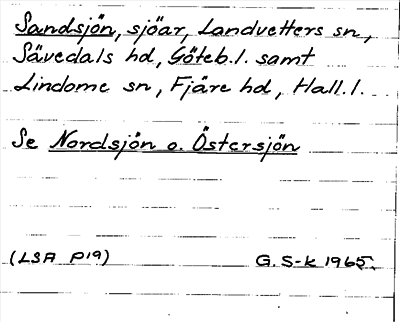 Sandsjön, sjöar, Landvetters sn,
Sävedals hd, Göteb. l. samt
Lindome sn, Fjäre hd, Hall. l.
Se Nordsjön o. Östersjön
(LSA P19) G. S-k 1965.